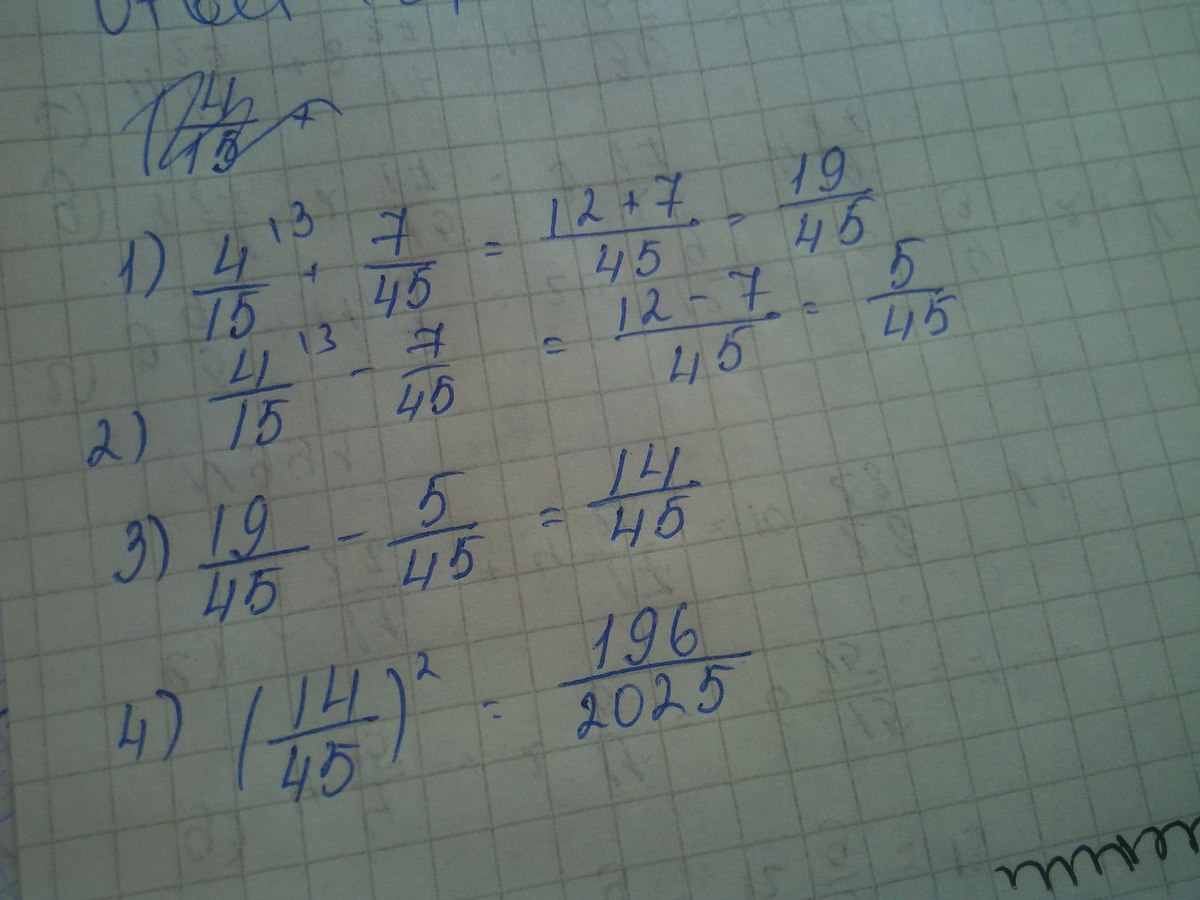 4/15 +
1) 4/15 ¹³ + 7/45 = 12+7/45 = 19/45
2) 4/15 ¹³ - 7/45 = 12-7/45 = 5/45
3) 19/45 - 5/45 = 14/45
4) (14/45)² = 196/2025